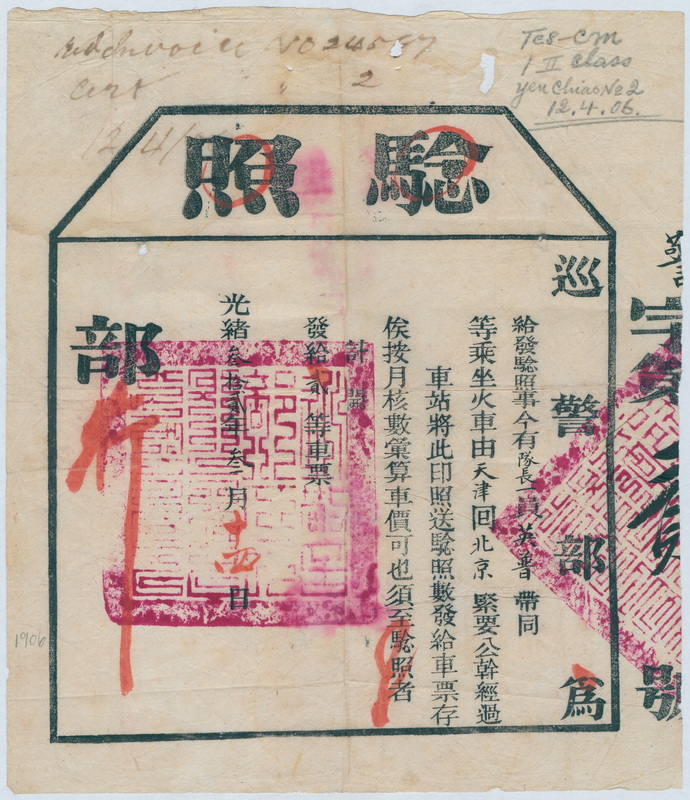 Invoice No 24567
Tes-Cm
Cert " 2
1 II Class
Yen Chiao No 2
12.4.06.
12/4/
驗照
巡警部為
給發驗照事今有隊長一員英普帶同
等乘坐火車由天津回北京緊要公幹經過
車站將此印照送驗照數發給車票存
俟按月核數彙算車價可也須至驗照者
計開
發給貳等車票
光緒叁拾貳年叁月十四日
部
行
警字第
號
1906